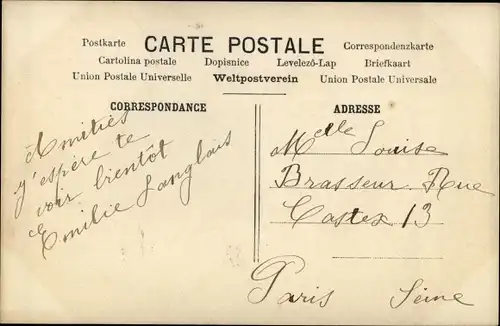 Postkarte CARTE POSTALE Correspondenzkarte
Cartolina postale Dopisnice Levelező-Lap Briefkaart
Union Postale Universelle Weltpostverein Union Postale Universale
CORRESPONDANCE
Amitiés
j'espère te
voir bientôt
Emilie Langlois
ADRESSE
Melle Louise
Brasseur. Rue
Castex 13
Paris Seine